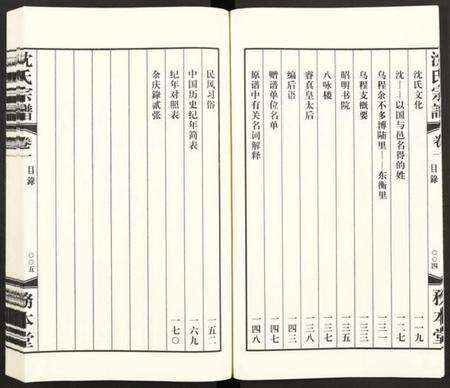 沈氏宗譜
卷一
目錄
〇〇四
務本堂
沈氏文化 一一九
沈——以国与邑名得的姓 一二七
乌程余不多博陆里——东衡里 一三一
乌程支概要 一三三
昭明书院 一三五
八咏楼 一三七
睿真皇太后 一三八
编后语 一四三
赠谱单位名单 一四七
原谱中有关名词解释 一四八
民风习俗 一五二
中国历史纪年简表 一六九
纪年对照表 一七〇
余庆錄贰张
沈氏宗譜
卷一
目錄
〇〇五
務本堂